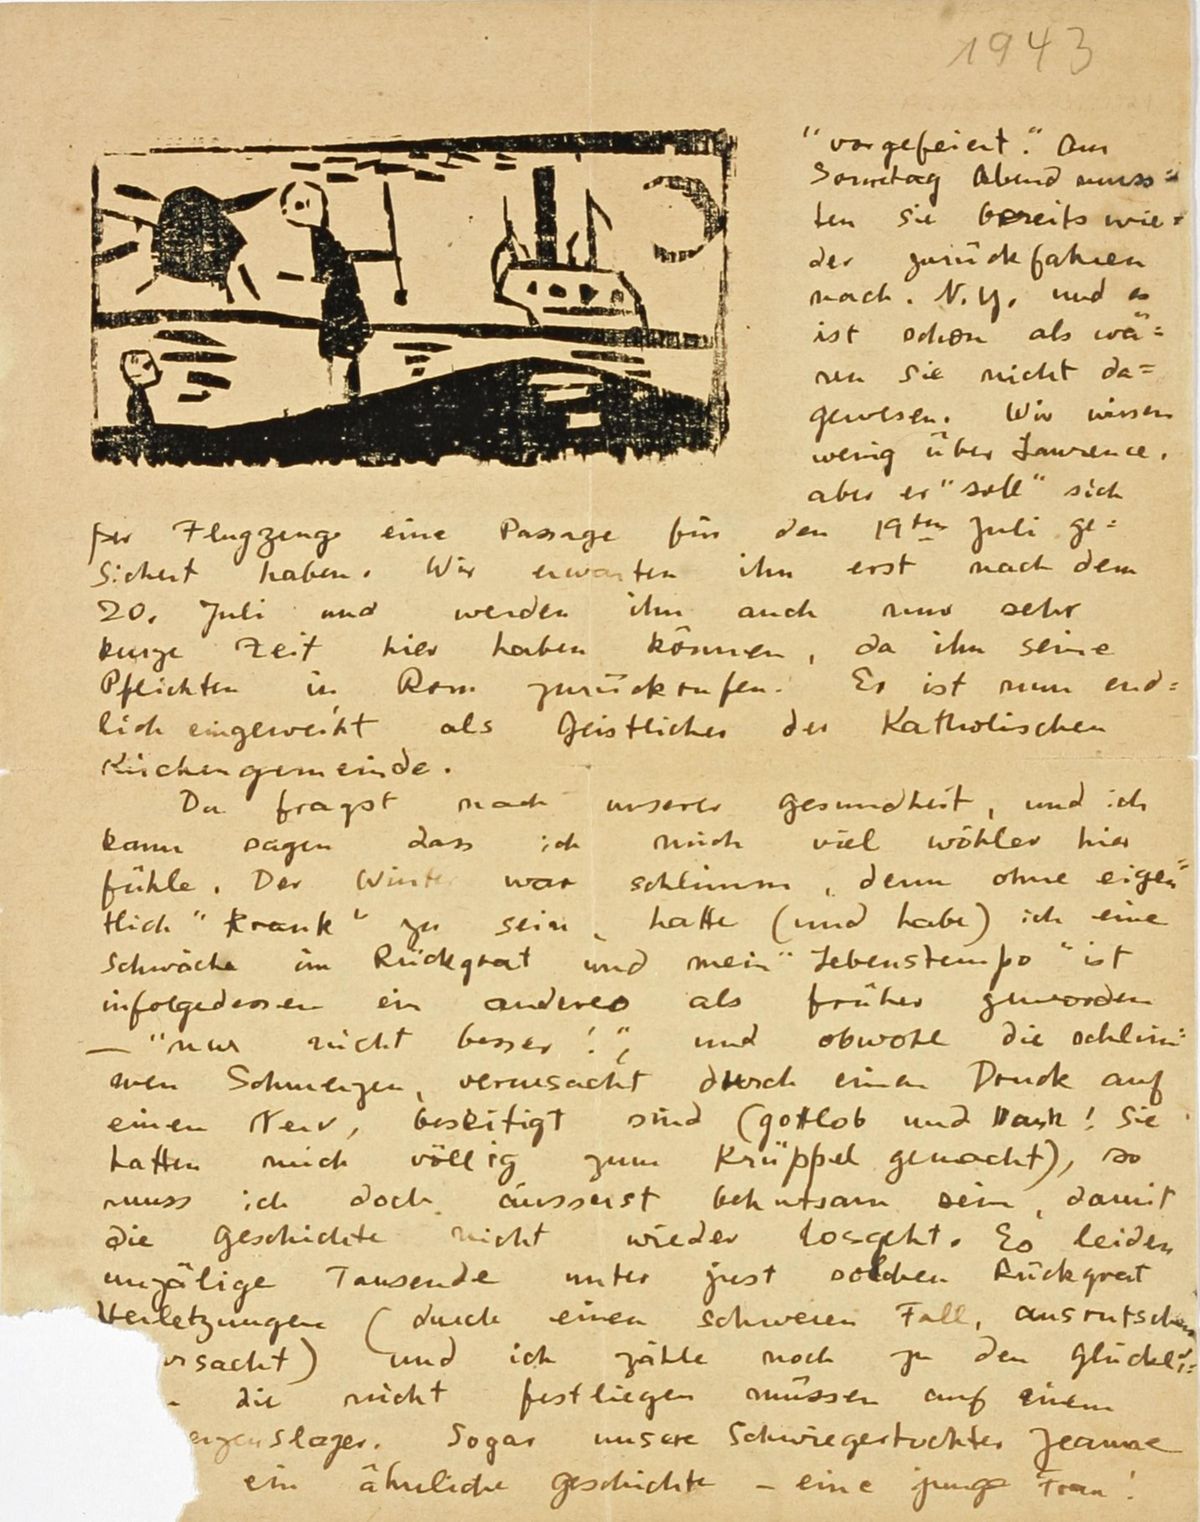 1943
"vorgefeiert." Am
Sonntag Abend muss=
ten sie bereits wie=
der zurückfahren
nach. N.Y. und es
ist schon als wä=
ren sie nicht da=
gewesen. Wir wissen
wenig über Lawrence,
aber er "soll" sich
per Flugzeug eine Passage für den 19ten Juli ge=
sichert haben. Wir erwarten ihn erst nach dem
20. Juli und werden ihn auch nur sehr
kurze Zeit hier haben können, da ihn seine
Pflichten in Rom zurückrufen. Er ist nun end=
lich eingeweiht als Geistlicher der Katholischen
Kirchengemeinde.
Du fragst nach unserer Gesundheit, und ich
kann sagen dass ich mich viel wöhler hier
fühle. Der Winter war schlimm, denn ohne eigen=
tlich "krank" zu sein, hatte (und habe) ich eine
Schwäche im Rückgrat und mein "Lebenstempo" ist
infolgedessen ein anderes als früher geworden
— "nur nicht besser!", und obwohl die schlim=
men Schmerzen, verursacht durch einen Druck auf
einen Nerv, beseitigt sind (gottlob und Dank! Sie
hatten mich völlig zum Krüppel gemacht), so
muss ich doch äusserst behutsam sein, damit
die Geschichte nicht wieder losgeht. Es leiden
unzälige Tausende unter just solchen Rückgrat
Verletzungen (durch einen schweren Fall, ausrutschen
ursacht) und ich zähle noch zu den Glückli=
die nicht festliegen müssen auf einem
erzenslager. Sogar unsere Schwiegertochter Jeanne
ein ähnliche Geschichte – eine junge Frau!